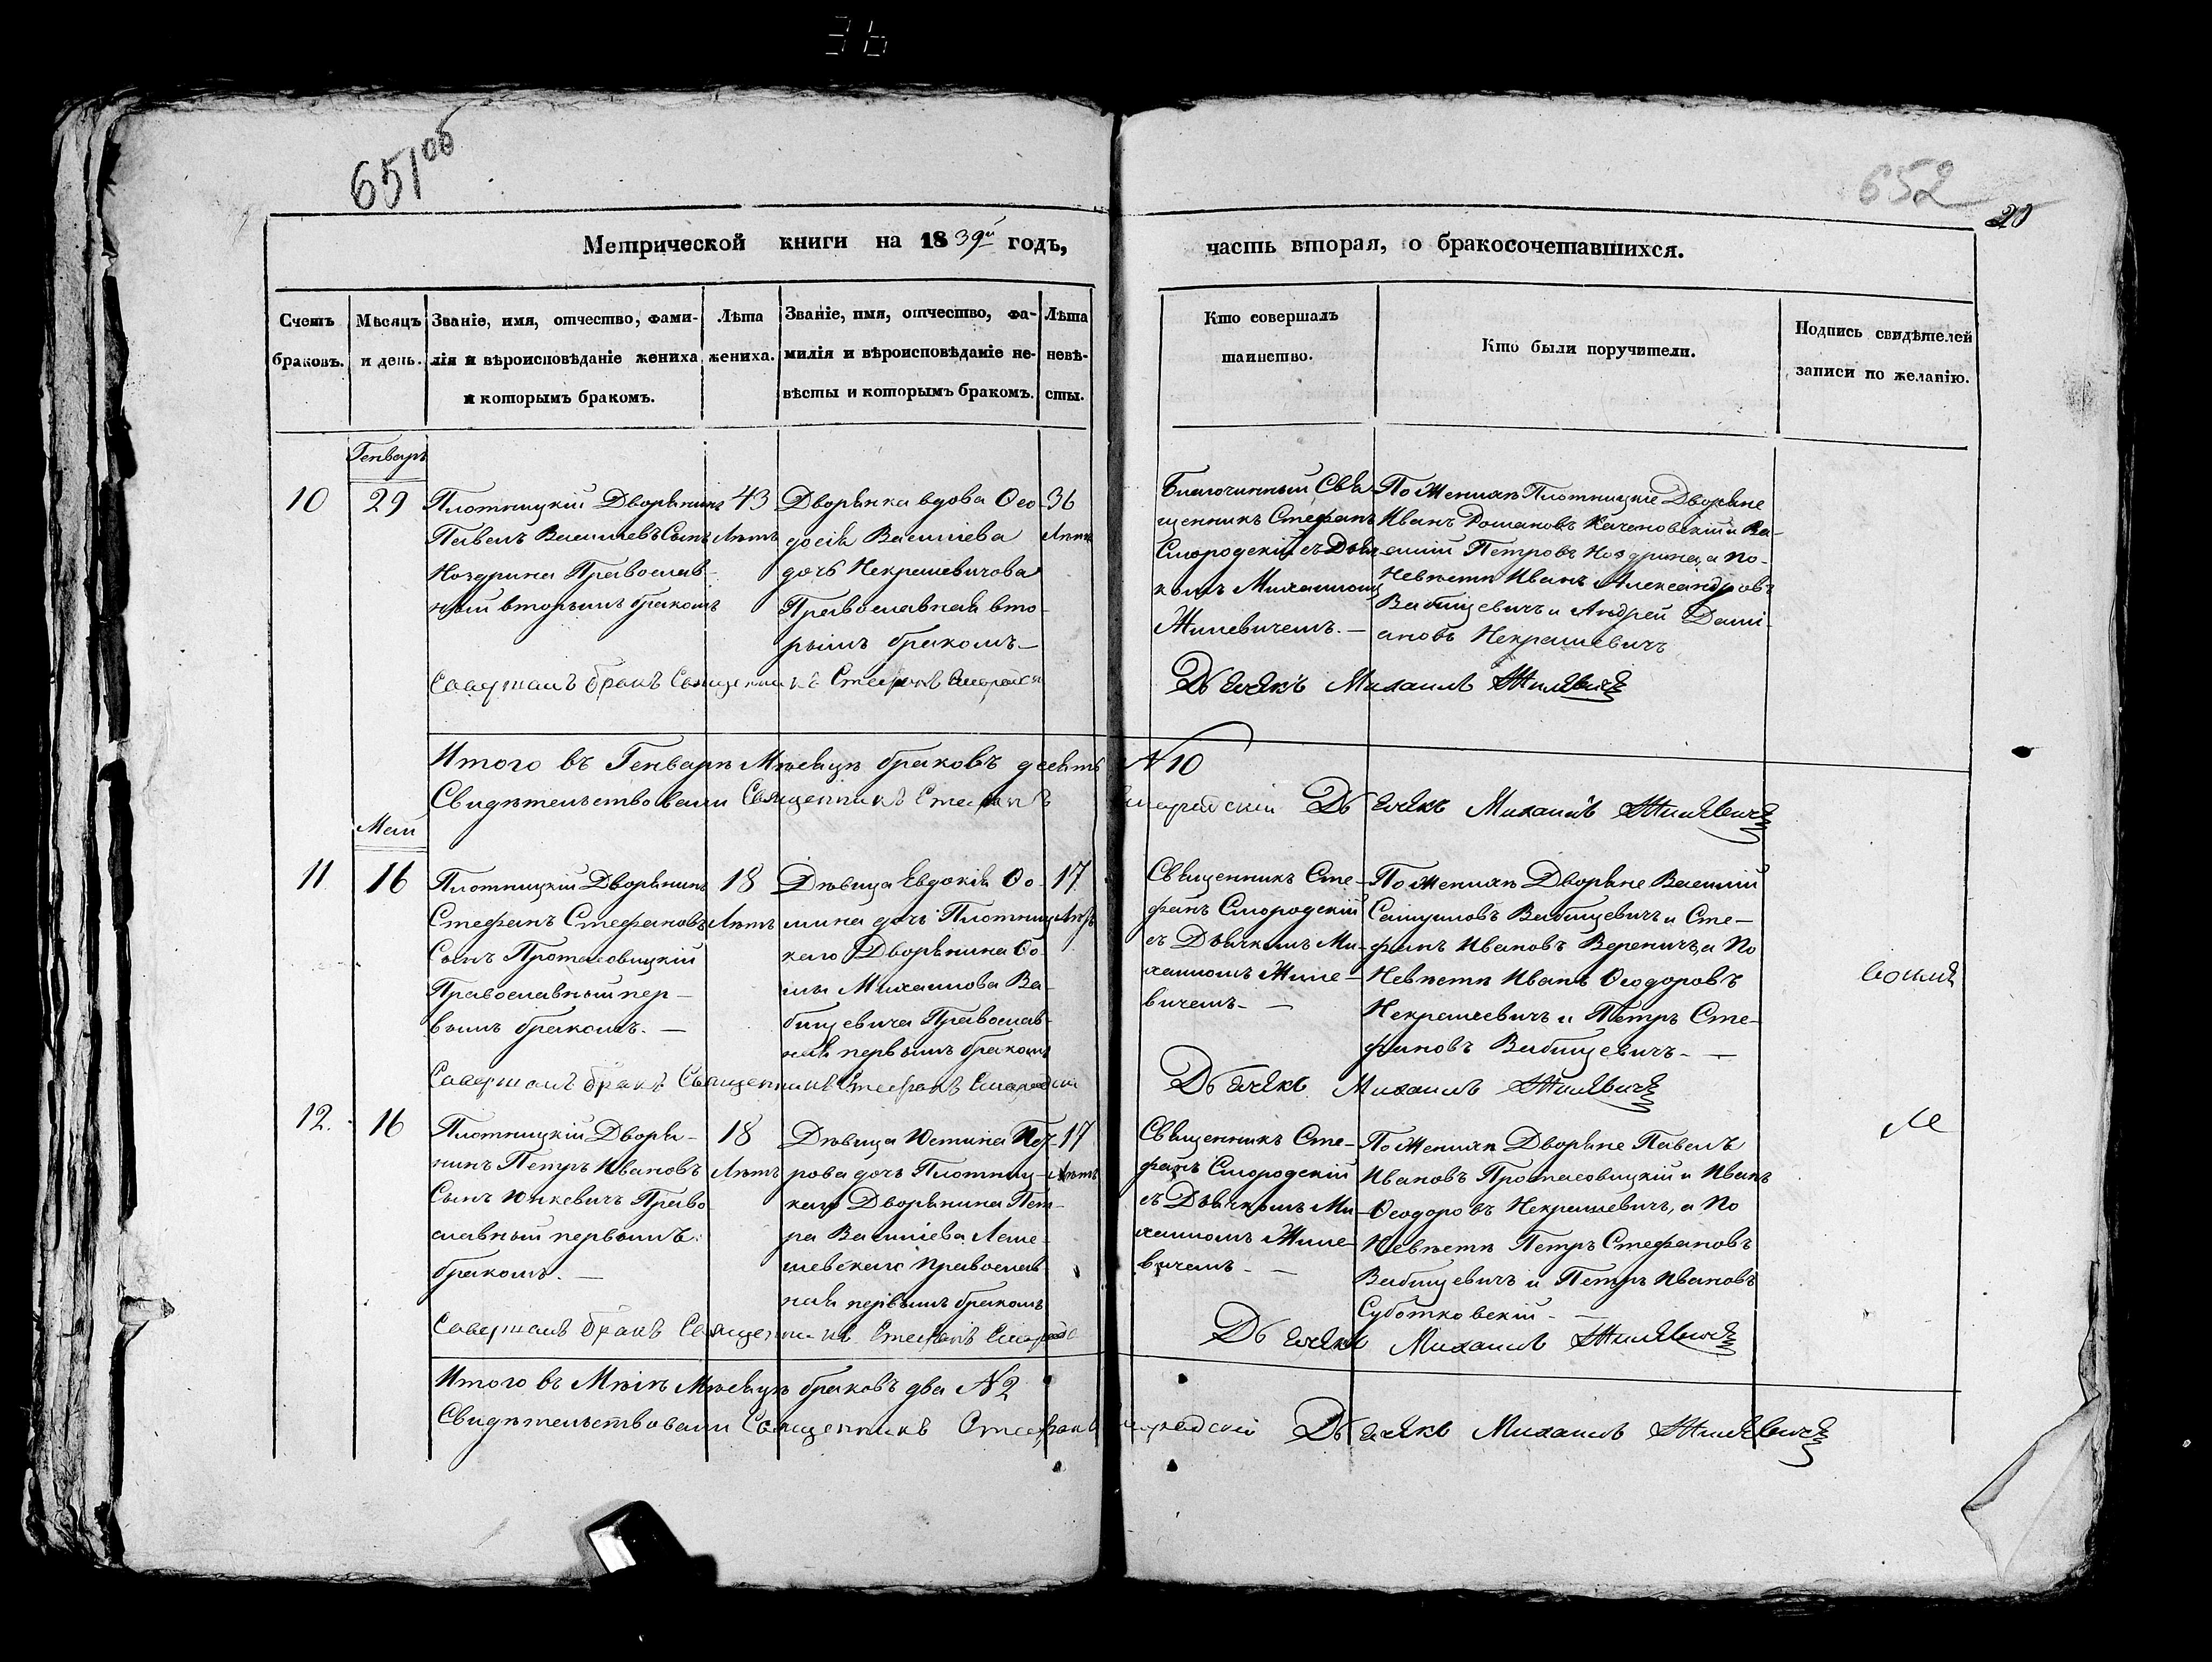 36
651 об
652
20
Метрической книги на 1839й годъ,
часть вторая, о бракосочетавшихся.
Счетъ браковъ.
Мѣсяцъ и день.
Званіе, имя, отчество, фами-
лія и вѣроисповѣданіе жениха
и которымъ бракомъ.
Лѣта
жениха.
Званіе, имя, отчество, фа-
милія и вѣроисповѣданіе не-
вѣсты и которымъ бракомъ.
Лѣта
невѣ-
сты.
Кто совершалъ
таинство.
Кто были поручители.
Подпись свидѣтелей
записи по желанію.
Генварь
10
29
Плотницкій Дворянинъ
Павелъ Васильевъ Сынъ
Ноздрина Православ-
ный вторымъ бракомъ
43
Лѣтъ
Дворянка вдова Ѳео-
досія Василіева
дочь Некрашевичова
Православная вто-
рымъ бракомъ
36
Лѣтъ
Благочинный Свя-
щенникъ Стефанъ
Смородскій съ Дья-
комъ Михаиломъ
Жилевичемъ.
По Женихѣ Плотницкіе Дворяне
Иванъ Романовъ Качановскій и Ва-
силій Петровъ Ноздрина, а по
Невѣстѣ Иванъ Александровъ
Вабищевичъ и Андрей Дамі-
ановъ Некрашевичъ
Совершалъ бракъ Священникъ Стефанъ Смородскій
Дьячекъ Михаилъ Жилевичъ
Итого въ Генварѣ Мѣсяцѣ браковъ десять № 10
Свидѣтельствовали Священникъ Стефанъ Смородскій Дьячекъ Михаилъ Жилевичъ
Маій
11
16
Плотницкій Дворянинъ
Стефанъ Стефановъ
Сынъ Протасовицкій
Православный пер-
вымъ бракомъ.
18
Лѣтъ
Дѣвица Евдокія Ѳо-
мина дочь Плотниц-
каго Дворянина Ѳо-
мы Михаилова Ва-
бищевича Православ-
ная первымъ бракомъ
17
Лѣтъ
Священникъ Сте-
фанъ Смородскій
съ Дьячкомъ Ми-
хаиломъ Жиле-
вичемъ
По Женихѣ Дворяне Василій
Самуиловъ Вабищевичъ и Сте-
фанъ Ивановъ Вереничъ, а по
Невѣстѣ Иванъ Ѳеодоровъ
Некрашевичъ и Петръ Сте-
фановъ Вабищевичъ
Совершалъ бракъ Священникъ Стефанъ Смородскій
Дьячекъ Михаилъ Жилевичъ
12.
16
Плотницкій Дворя-
нинъ Петръ Ивановъ
Сынъ Юнкевичъ Право-
славный первымъ
бракомъ.
18
Лѣтъ
Дѣвица Юстина Пет-
рова дочь Плотниц-
каго Дворянина Пет-
ра Василіева Леме-
шевскаго Православ-
ная первымъ бракомъ
17
Лѣтъ
Священникъ Сте-
фанъ Смородскій
съ Дьячкомъ Ми-
хаиломъ Жиле-
вичемъ
По Женихѣ Дворяне Павелъ
Ивановъ Протасовицкій и Иванъ
Ѳеодоровъ Некрашевичъ, а по
Невѣстѣ Петръ Стефановъ
Вабищевичъ и Петръ Ивановъ
Суботковскій
Совершалъ бракъ Священникъ Стефанъ Смородскій
Дьячекъ Михаилъ Жилевичъ
Итого въ Маіѣ Мѣсяцѣ браковъ два № 2
Свидѣтельствовали Священникъ Стефанъ Смородскій Дьячекъ Михаилъ Жилевичъ